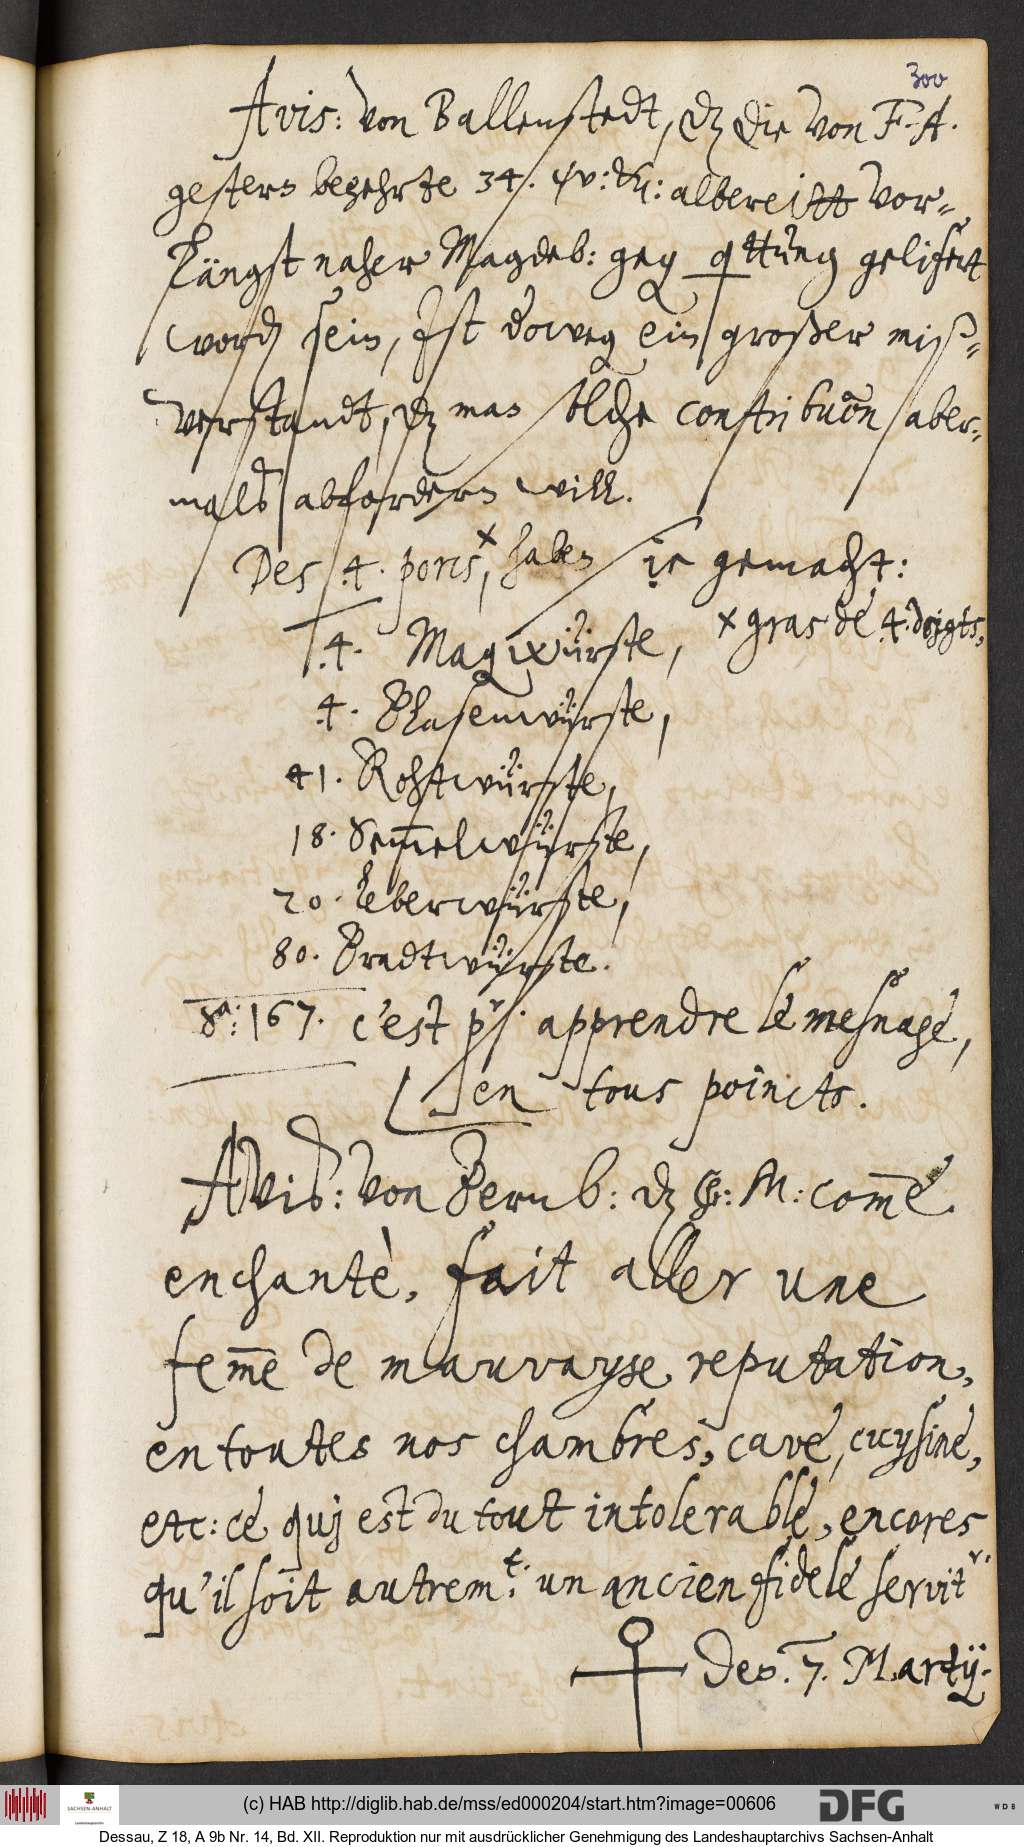 300
Avis: von Ballenstedt, dz die von F. A.
gestern begehrte 34. albereitt vor-
längst naher Magdeb: geg quittung gelifert
word sein, Ist dorweg ein großer miß-
verstandt, dz man solche contribuon aber-
mals abfordern will.
Des 4. porcs, haben sie gemacht:
× gras de 4. doigts,
4. Magwürste,
4. Blasenwürste,
41. Rohtwürste,
18. Semelwürste,
20. Leberwürste,
80. Bradtwürste.
Sa: 167. c'est apprendre le mesnage,
en tous poincts.
Avis: von Bernb: dz M: come
enchantè, fait aller une
feme de mauvayse reputation,
en toutes nos chambres, cave, cuysine,
etc: ce quj est du tout intolerable, encores
qu'il soit autremt: un ancien fidele servitr.
Des. 7. Martij.
(c) HAB http://diglib.hab.de/mss/ed000204/start.htm?image=00606
DFG
WDB
SACHSEN-ANHALT
Dessau, Z 18, A 9b Nr. 14, Bd. XII. Reproduktion nur mit ausdrücklicher Genehmigung des Landeshauptarchivs Sachsen-Anhalt